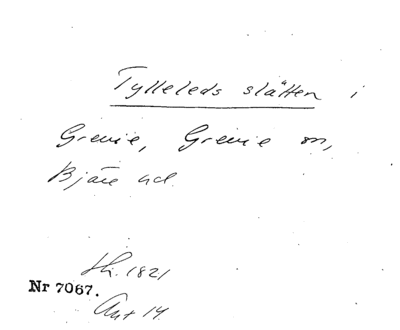 Tylleleds slätten i
Grevie, Grevie sn,
Bjäre hd.
Sk. 1821
Nr 7067.
Ant 14.